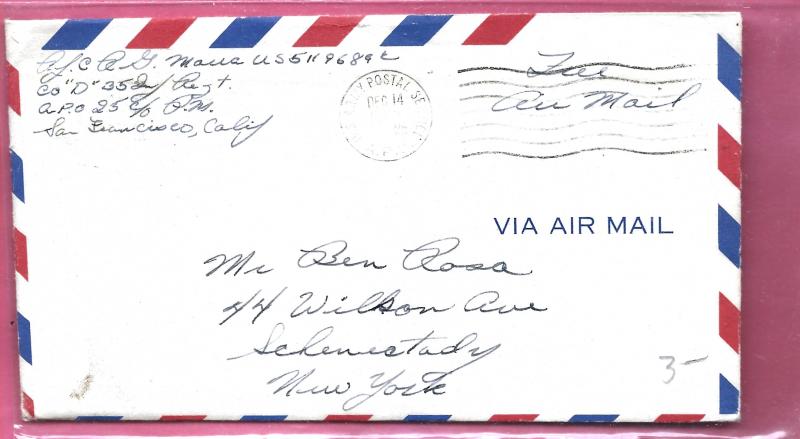 Pfc A G. Maua US 51196892
Co "D" 35 Inf Regt.
A.P.O 25 c/o P.M.
San Francisco, Calif
ARMY POSTAL SE
DEC 14
Free
Air Mail
VIA AIR MAIL
Mr Ben Rosa
44 Wilson Ave
Schenectady
New York
3-